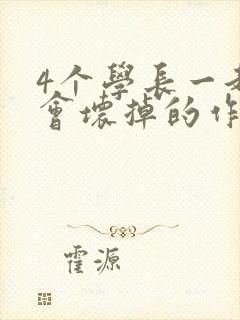 4个學長一起
會壞掉的作
霍源